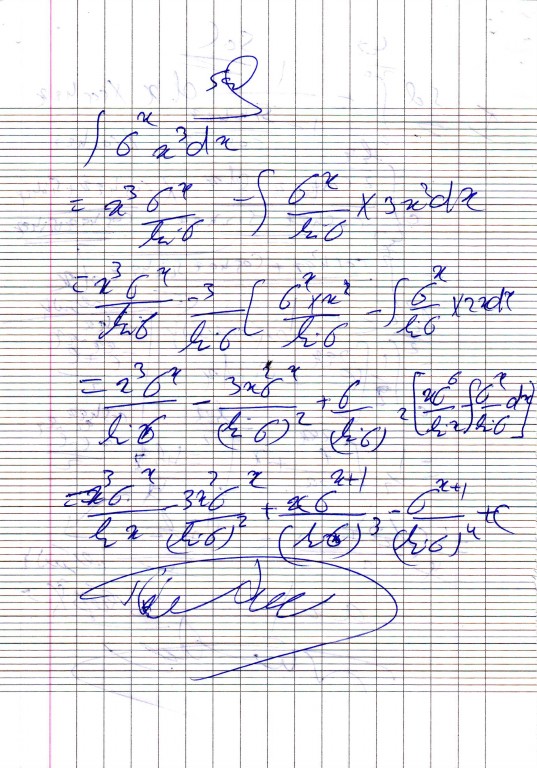 Sol
∫ 6^x x^3 dx
= x^3 6^x/ln 6 - ∫ 6^x/ln 6 × 3x^2 dx
= x^3 6^x/ln 6 - 3/ln 6 [ 6^x × x^2/ln 6 - ∫ 6^x/ln 6 × 2x dx
= x^3 6^x/ln 6 - 3x^2 6^x/(ln 6)^2 + 6/(ln 6)^2 [ x6^6/ln x - ∫ 6^x/ln 6 dx ]
= x^3 6^x/ln x - 3x^2 6^x/(ln 6)^2 + x 6^(x+1)/(ln 6)^3 - 6^(x+1)/(ln 6)^4 + C